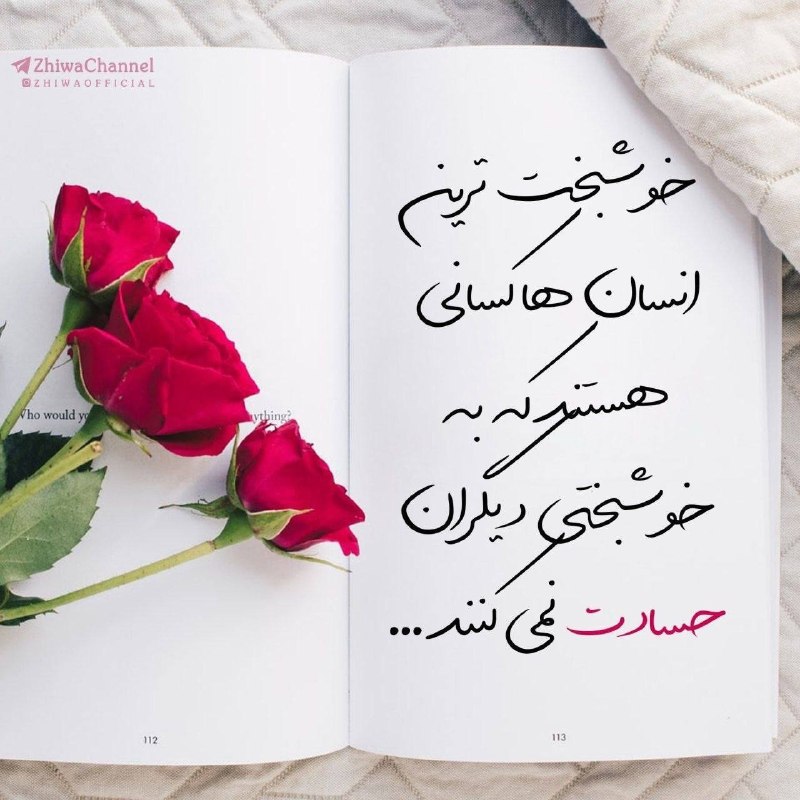 ZhiwaChannel
ZHIWAOFFICIAL
خوشبخت ترین
انسان ها کسانی
هستند که به
خوشبختی دیگران
حسادت نمی کنند...
Who would you
anything?
112
113